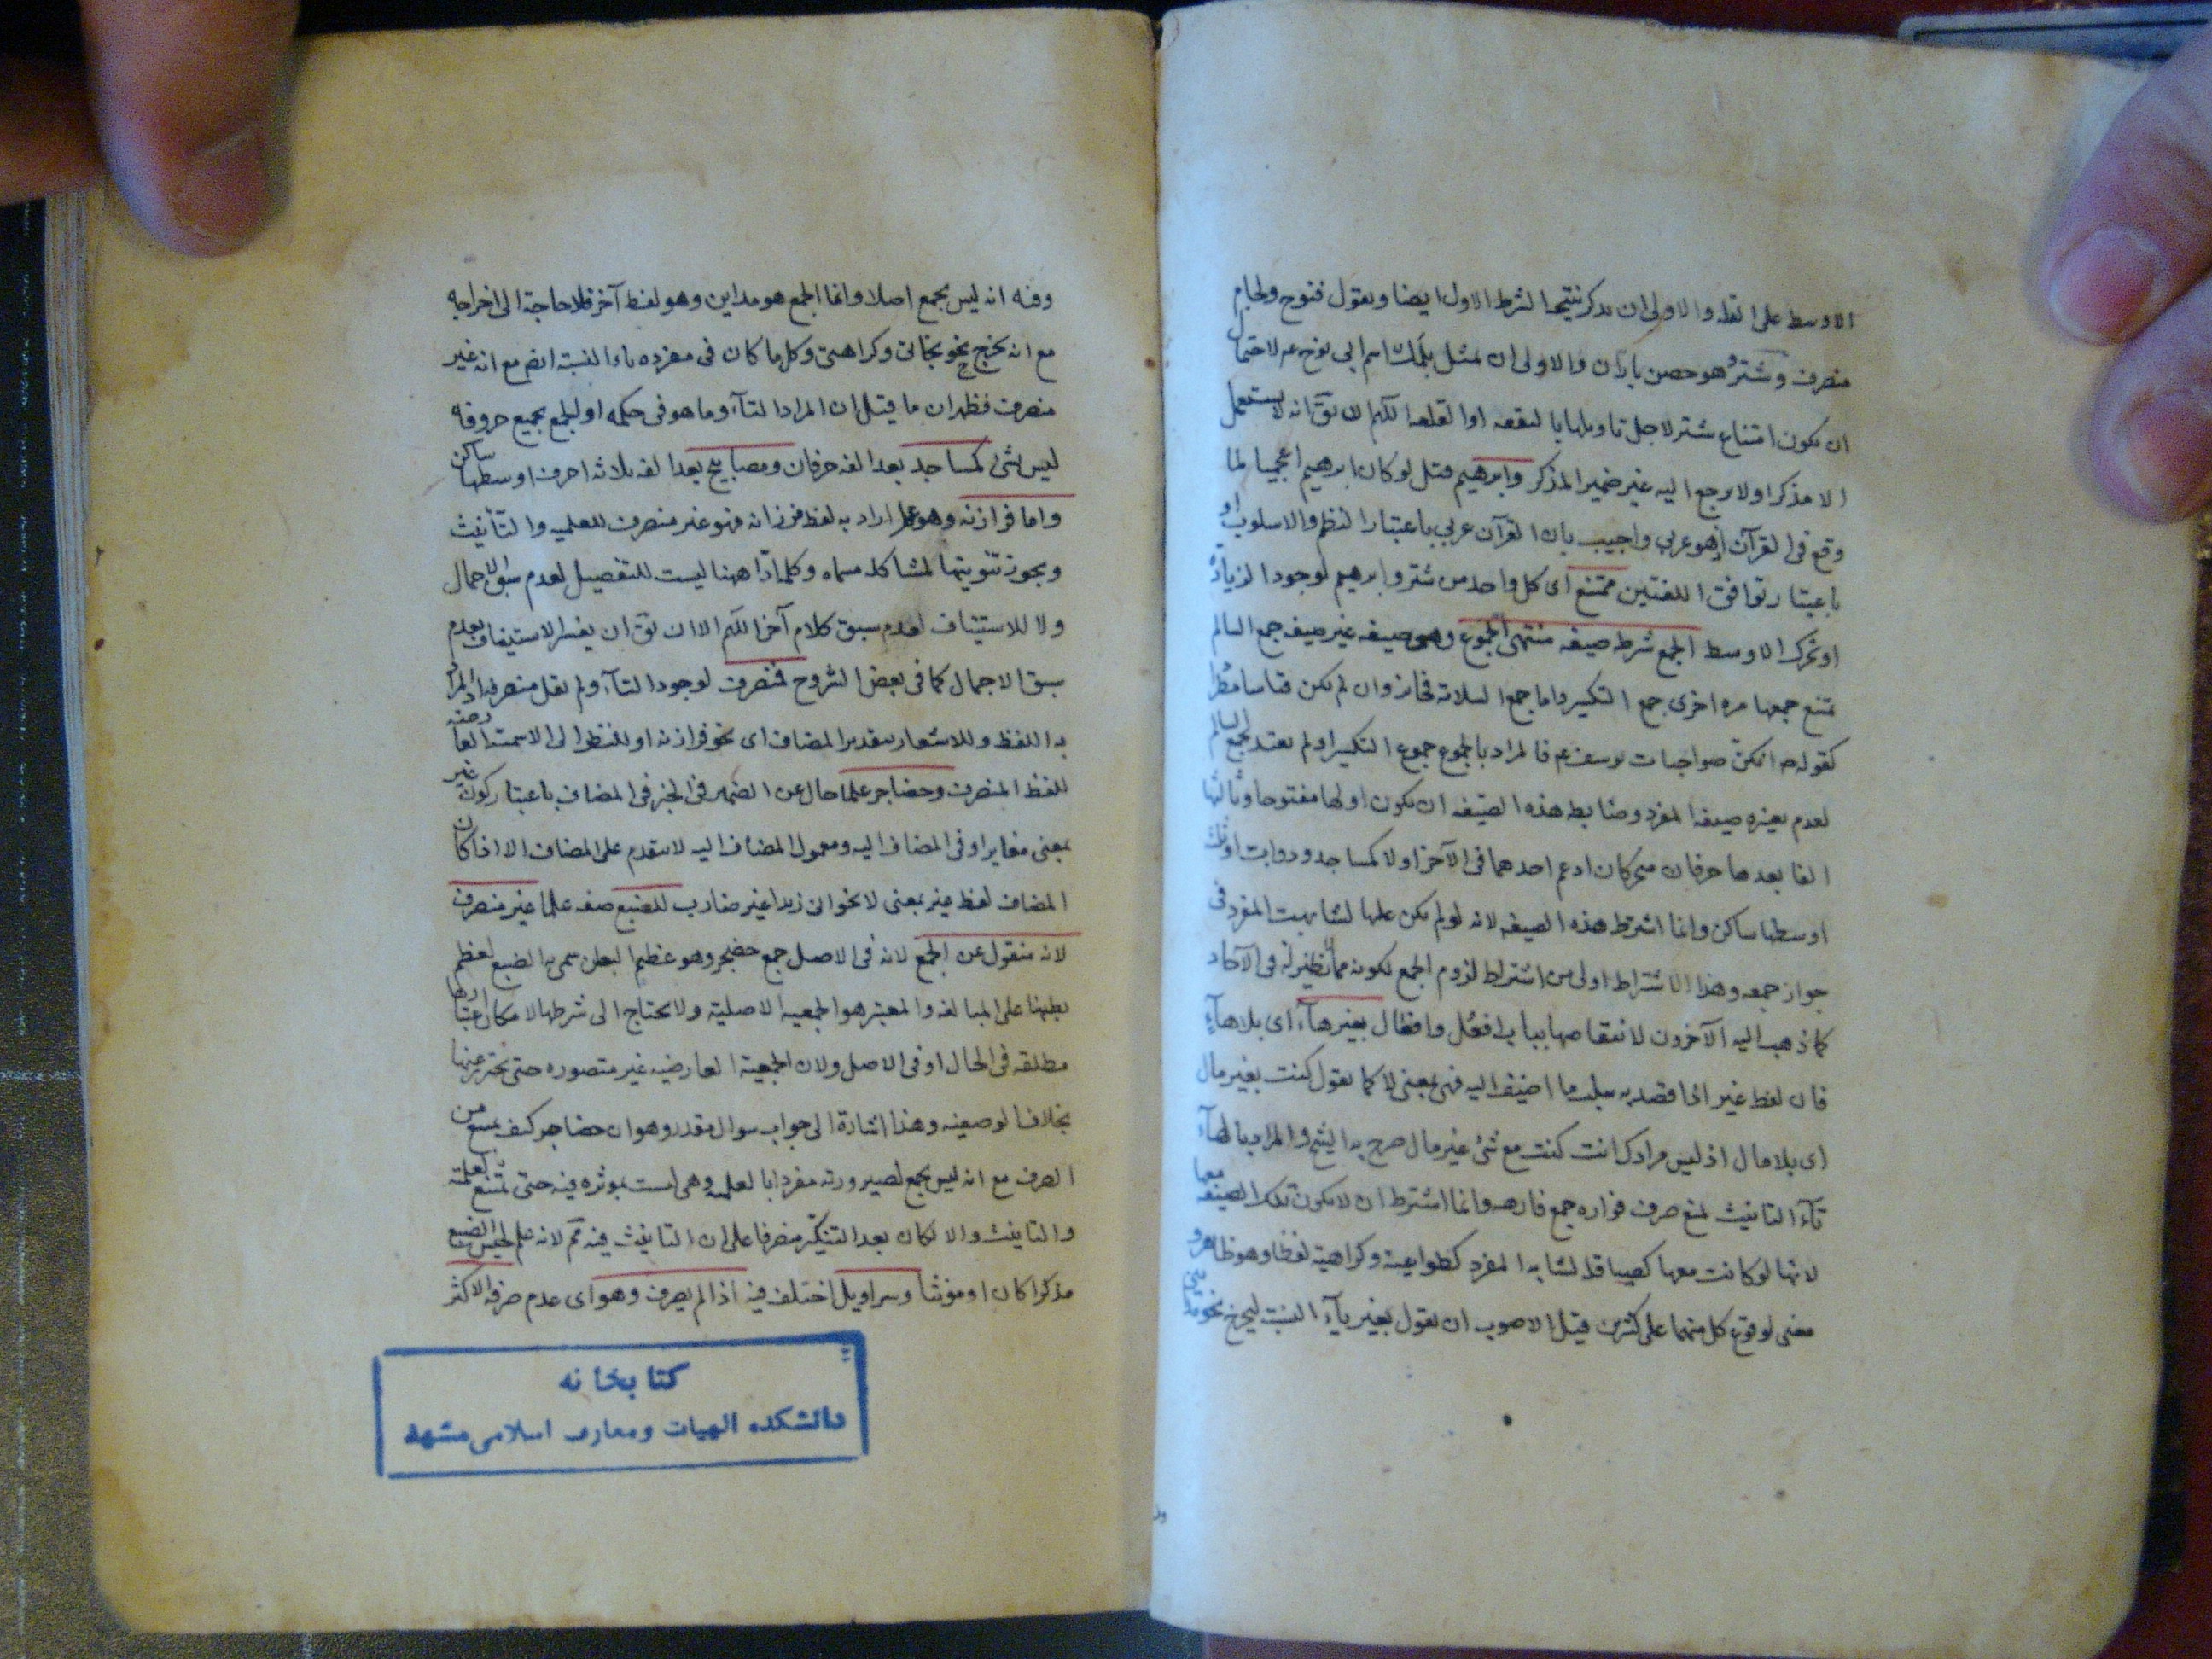 الاوسط على العله والاولى ان يذكر نتيجه الشرط الاول ايضا ويقول فنوح ولجام
منصرف وشتر وهو حصن باران والاولى ان يمثل بلمك اسم ابى نوح عم لاحتمال
ان يكون امتناع شتر لاجل تاويلها بالبقعه او القلعه اللهم الا ان يق انه لا يستعمل
الا مذكرا ولا يرجع اليه غير ضمير المذكر وابرهيم قيل لو كان ابرهيم اعجميا لما
وقع فى القرآن اذ هو عربى واجيب بان القرآن عربى باعتبار النظم والاسلوب او
باعتبار توافق اللغتين ممتنع اى كل واحد من شتر وابرهيم لوجود الزيادة
او تحرك الاوسط الجمع شرط صيغه منتهى الجموع وهى صيغه غير صيغه جمع السالم
تمتنع جمعها مره اخرى جمع التكسير واما جمع السلامة فجائز وان لم يكن قياسا مطردا
كقوله انكن صواحبات يوسف عم فالمراد بالجموع جموع التكسير او لم يعتد بجمع السالم
لعدم تغيره صيغه المفرد وضابط هذه الصيغه ان يكون اولها مفتوحا وثالثها
الفا بعدها حرفان متحركان ادغم احدهما فى الآخر اولا كمساجد ودواب او ثلث
اوسطها ساكن وانما اشترط هذه الصيغه لانه لو لم يكن عليها لشابهت المفرد فى
جواز جمعه وهذا الاشتراط اولى من اشتراط لزوم الجمع لكونه مما لا نظير له فى الآحاد
كما ذهب اليه الآخرون لانتقاصها بباب افعل وافعال بغير هاء اى بلا هاء
فان لفظ غير اذا قصد به سلب ما اضيف اليه فهى بمعنى لا كما تقول كنت بغير مال
اى بلا مال اذ ليس مرادك انت كنت مع شئ غير مال صرح به الشيخ والمراد بالهاء
تاء التانيث لمنع صرف فواره جمع فارهه وانما اشترط ان لا يكون تلك الصيغه معها
لانها لو كانت معها كصياقله لشابه المفرد كطواعية وكراهية لفظا وهو ظاهر و
معنى لوقوع كل منهما على كثيرين قيل الاصوب ان يقول بغير ياء النسبت ليخرج نحو مدايني
وفيه انه ليس بجمع اصلا وانما الجمع هو مداين وهو لفظ آخر فلا حاجة الى اخراجه
مع انه يخرج نحو بخاتى وكراسى وكل ما كان فى مفرده ياء النسبة ايضا مع انه غير
منصرف فظهر ان ما قيل ان المراد التاء وما هو فى حكمه او الجمع بجميع حروفه
ليس بشئ كمساجد بعد الفه حرفان ومصابيح بعد الفه ثلاثه احرف اوسطها ساكن
واما فرازنه وهو علم اراد به لفظ فرزانه فهو غير منصرف للعلميه والتأنيث
ويجوز تنوينها لمشاكله مسماه وكلمة اما ههنا ليست للتفصيل لعدم سبق الاجمال
ولا للاستيناف لعدم سبق كلام آخر اللهم الا ان يق ان يفسر الاستيناف بعدم
سبق الاجمال كما فى بعض الشروح فمنصرف لوجود التاء ولم يقل منصرفه اذ المراد
به اللفظ وللاشعار بتقدير المضاف اى نحو فرازنه او للنظر الى الاسمية العارضة
للفظ المنصرف وحضاجر علما حال عن الضمير فى الخبر فى المضاف باعتبار كونه غير
بمعنى مغاير او فى المضاف اليه ومعمول المضاف اليه لا يتقدم على المضاف الا اذا كان
المضاف لفظ غير بمعنى لا نحو ان زيدا غير ضارب للضبع صفه علما غير منصرف
لانه منقول عن الجمع لانه فى الاصل جمع حضجر وهو عظيم البطن سمى به الضبع لعظم
بطنها على المبالغه والمعتبر هو الجمعيه الاصلية ولا يحتاج الى شرطها لامكان اعتبارها
مطلقه فى الحال او فى الاصل ولان الجمعية العارضيه غير متصوره حتى يحترز عنها
بخلاف الوصفيه وهذا اشارة الى جواب سوال مقدر وهو ان حضاجر كيف يمنع من
الصرف مع انه ليس بجمع لصيرورته مفردا بالعلميه وهى ليست بموثره فيه حتى تمنع لعلمية
والتانيث والا لكان بعد التنكير منصرفا على ان التانيث فيه ثم لانه علم لجنس الضبع
مذكرا كان او مؤنثا وسراويل اختلف فيه اذا لم يصرف وهو اى عدم صرفه الاكثر
كتابخانه
دانشكده الهيات ومعارف اسلامى مشهد